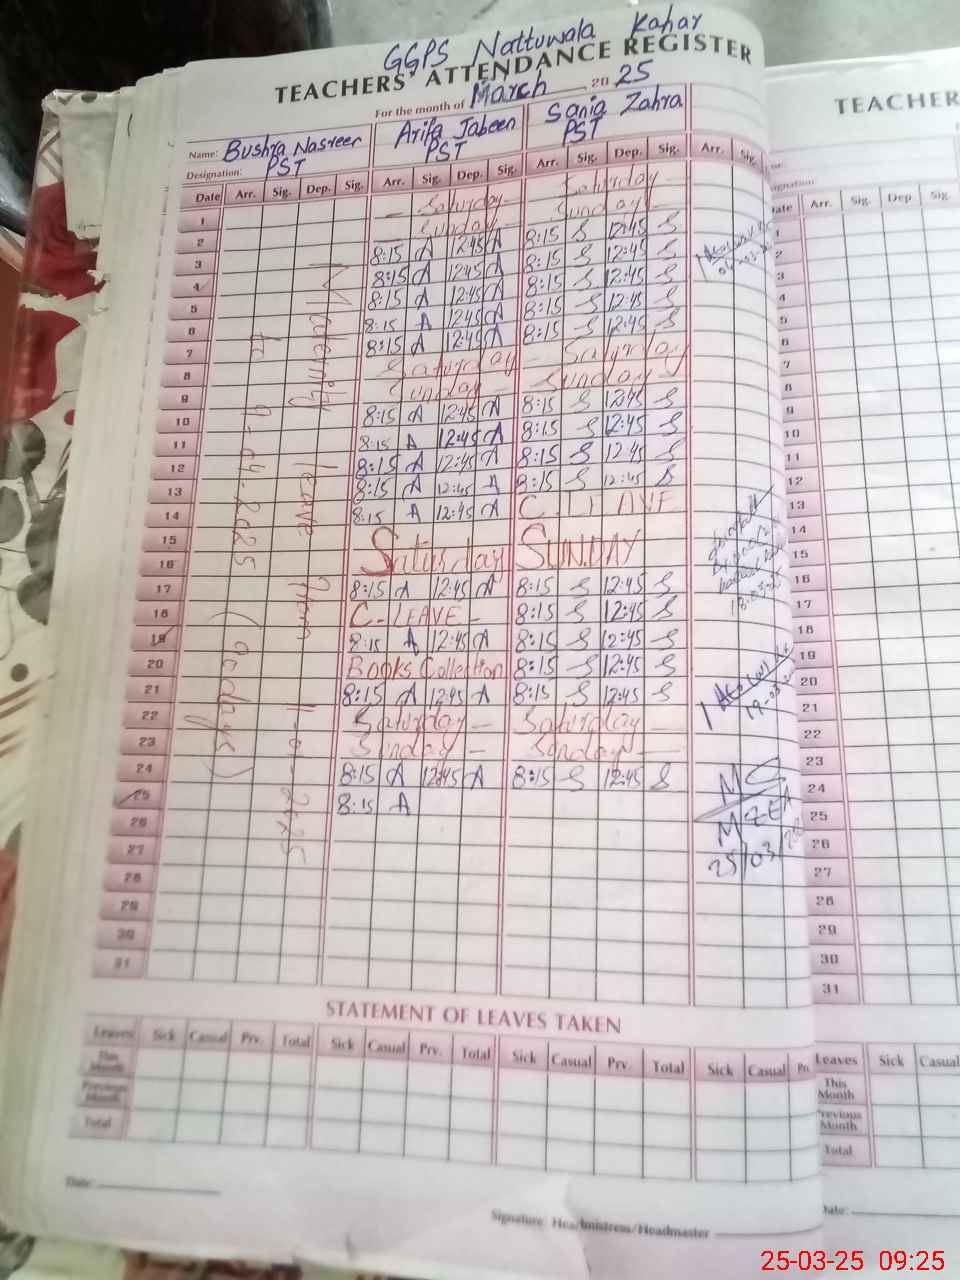 GGPS Nattuwala Kahar
TEACHERS' ATTENDANCE REGISTER
For the month of March 2025
Name: Bushra Nasreer Arifa Jabeen Sania Zahra
Designation: PST PST PST
Date Arr. Sig. Dep. Sig. Arr. Sig. Dep. Sig. Arr. Sig. Dep. Sig. Arr. Sig.
Maternity leave from
to 9-04-2025 (90 days)
1 - Saturday - Saturday -
2 Sunday - Sunday -
3 8:15 A 12:45 A 8:15 S 12:45 S
4 8:15 A 12:45 A 8:15 S 12:45 S
5 8:15 A 12:45 A 8:15 S 12:45 S
6 8:15 A 12:45 A 8:15 S 12:45 S
7 8:15 A 12:45 A 8:15 S 12:45 S
8 Saturday - Saturday
9 Sunday - Sunday -
10 8:15 A 12:45 A 8:15 S 12:45 S
11 8:15 A 12:45 A 8:15 S 12:45 S
12 8:15 A 12:45 A 8:15 S 12:45 S
13 8:15 A 12:45 A 8:15 S 12:45 S
14 8:15 A 12:45 A C. LEAVE
15
16 Saturday SUNDAY
17 8:15 A 12:45 A 8:15 S 12:45 S
18 C. LEAVE - 8:15 S 12:45 S
19 8:15 A 12:45 A 8:15 S 12:45 S
20 Books Collection 8:15 S 12:45 S
21 8:15 A 12:45 A 8:15 S 12:45 S
22 Saturday - Saturday
23 Sunday - Sunday -
24 8:15 A 12:45 A 8:15 S 12:45 S
25 8:15 A
26
27
28
29
30
31
MC
MZEA
25/03/
STATEMENT OF LEAVES TAKEN
Leaves Sick Casual Prv. Total Sick Casual Prv. Total Sick Casual Prv. Total Sick Casual
This Month
Previous Month
Total
Date:
Signature Headmistress/Headmaster
TEACHER
Arr. Sig. Dep Sig.
3
4
5
6
7
8
9
10
11
12
13
14
15
16
17
18
19
20
21
22
23
24
25
26
27
28
29
30
31
Leaves Sick Casual
This Month
Previous Month
Total
Date:
25-03-25 09:25